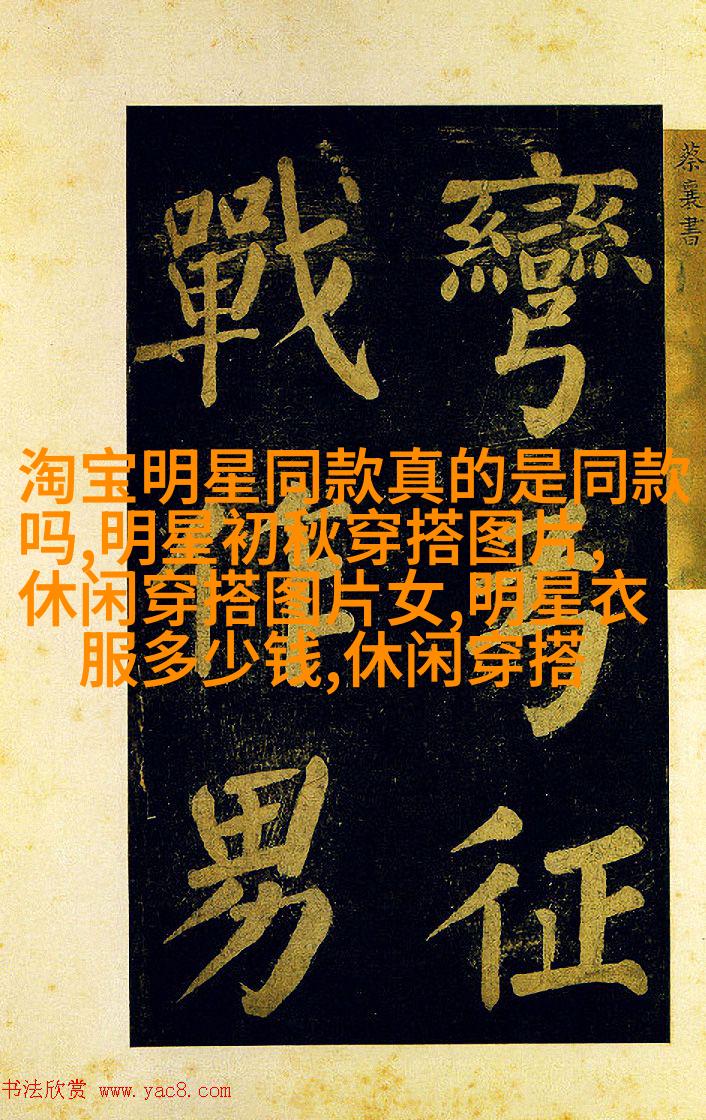 蔡襄書
彎弓征
戰作男
淘宝明星同款真的是同款
吗,明星初秋穿搭图片,
休闲穿搭图片女,明星衣
服多少钱,休闲穿搭
书法欣赏 www.yac8.com